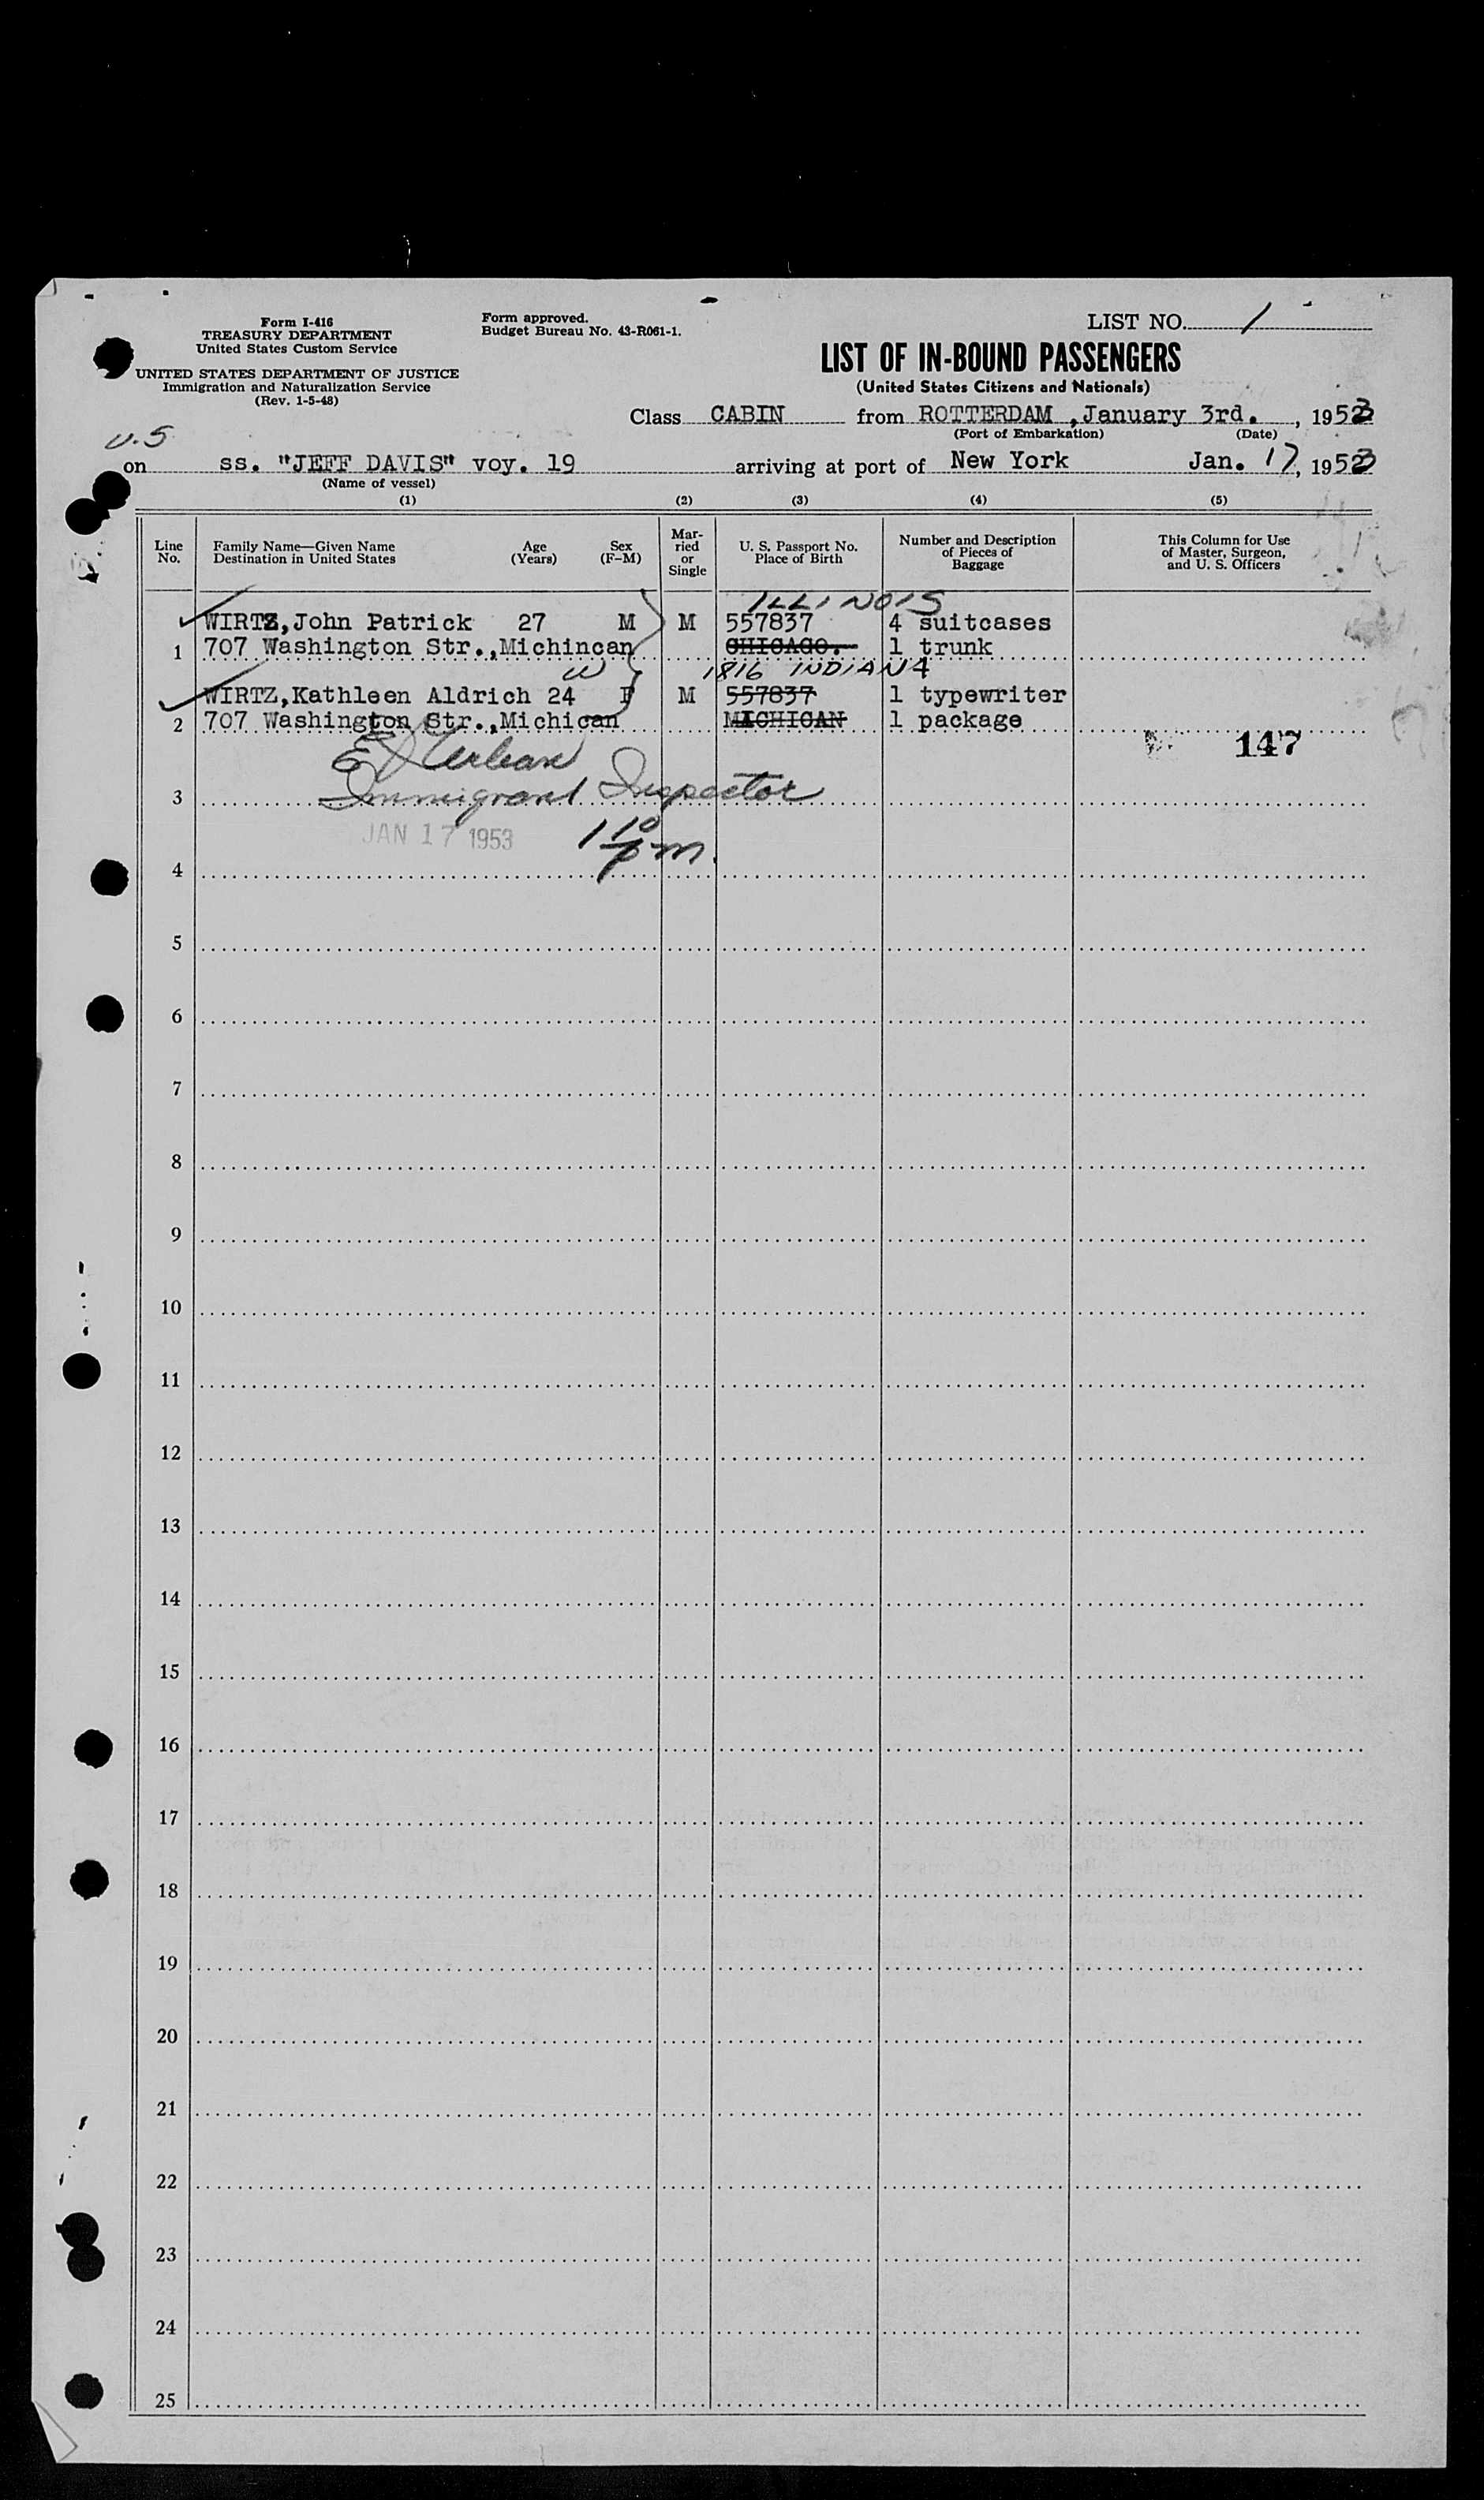 LIST NO. 1
Form I-416
TREASURY DEPARTMENT
United States Custom Service
UNITED STATES DEPARTMENT OF JUSTICE
Immigration and Naturalization Service
(Rev. 1-5-48)
Form approved.
Budget Bureau No. 43-R061-1.
LIST OF IN-BOUND PASSENGERS
(United States Citizens and Nationals)
Class CABIN from ROTTERDAM ,January 3rd. , 1953
(Port of Embarkation) (Date)
U.S
on ss. "JEFF DAVIS" voy. 19 arriving at port of New York Jan. 17, 1953
(Name of vessel)
(1) (2) (3) (4) (5)
Line No. Family Name—Given Name Destination in United States Age (Years) Sex (F–M) Mar-ried or Single U. S. Passport No. Place of Birth Number and Description of Pieces of Baggage This Column for Use of Master, Surgeon, and U. S. Officers
ILLINOIS
WIRTZ,John Patrick 27 M M 557837 4 suitcases
1 707 Washington Str.,Michincan CHICAGO. 1 trunk
W 1816 INDIANA
WIRTZ,Kathleen Aldrich 24 F M 557837 1 typewriter
2 707 Washington Str.,Michican MICHICAN 1 package
147
Urban
3 Immigrant Inspector
JAN 17 1953 1 10 pm.
4
5
6
7
8
9
10
11
12
13
14
15
16
17
18
19
20
21
22
23
24
25